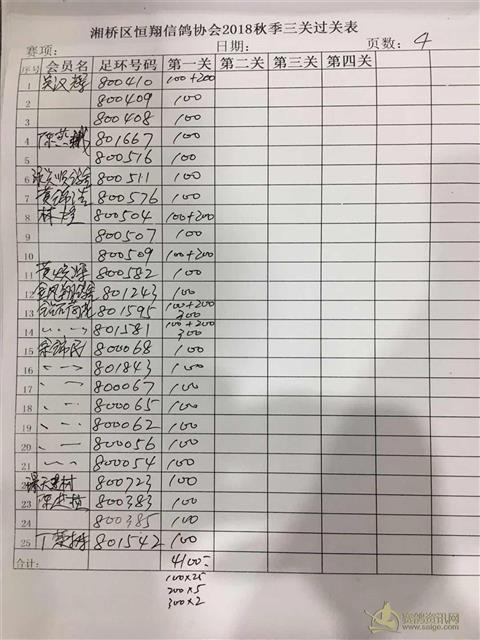 湘桥区恒翔信鸽协会2018秋季三关过关表
赛项： 日期： 页数：4
序号 会员名 足环号码 第一关 第二关 第三关 第四关
1 吴汉辉 800410 100+200
2 800409 100
3 800408 100
4 801667 100
5 800516 100
6 800511 100
7 黄锦浩 800576 100
8 林 800504 100+200
9 800507 100
10 800509 100+200
11 黄 辉 800582 100
12 801243 100
13 801595 100+200
300
14 801581 100+200
300
15 余锦民 800068 100
16 801843 100
17 800067 100
18 800065 100
19 800062 100
20 800056 100
21 800054 100
800723 100
23 800383 100
24 800385 100
25 丁 801542 100
合计： 4100
100×25
200×5
300×2
赛鸽资讯网
www.saige.com